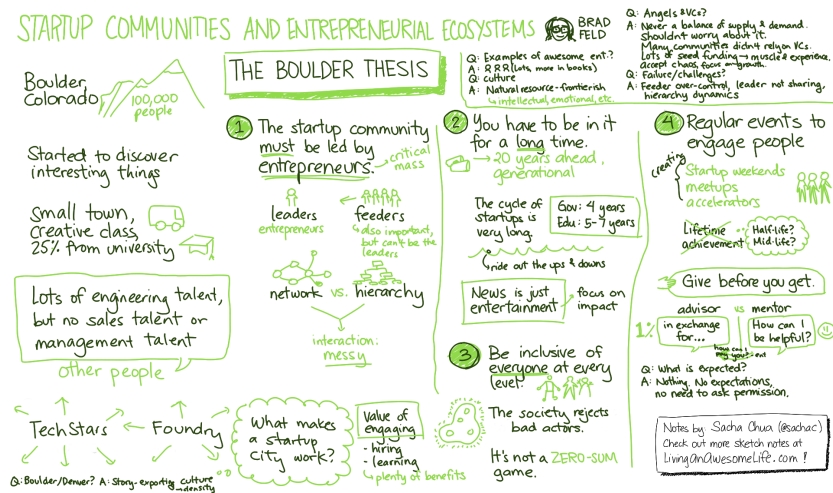 STARTUP COMMUNITIES AND ENTREPRENEURIAL ECOSYSTEMS
BRAD
FELD
Boulder,
Colorado
100,000
people
Started to discover
interesting things
Small town,
creative class,
25% from university
Lots of engineering talent,
but no sales talent or
management talent
other people
TechStars
Foundry
Q: Boulder/Denver? A: Story-exporting culture
→density
THE BOULDER THESIS
1 The startup community
must be led by
entrepreneurs.
critical
mass
leaders
entrepreneurs
feeders
also important,
but can't be the
leaders
network vs. hierarchy
interaction:
messy
What makes
a startup
city work?
Value of
engaging
- hiring
- learning
plenty of benefits
Q: Examples of awesome ent.?
A: RRR (lots, more in books)
Q: culture
A: Natural resource-frontierish
intellectual, emotional, etc.
2 You have to be in it
for a long time.
→ 20 years ahead,
generational
The cycle of
startups is
very long.
Gov: 4 years
Edu: 5-7 years
ride out the ups & downs
News is just
entertainment
focus on
impact
3 Be inclusive of
everyone at every
level.
The society rejects
bad actors.
It's not a ZERO-SUM
game.
Q: Angels &VCs?
A: Never a balance of supply & demand.
Shouldn't worry about it.
Many communities didn't rely on VCs.
Lots of seed funding → muscle & experience,
accept chaos, focus on growth.
Q: Failure/challenges?
A: Feeder over-control, leader not sharing,
hierarchy dynamics
4 Regular events to
engage people
creating
Startup weekends
meetups
accelerators
Lifetime
achievement
Half-life?
Mid-life?
Give before you get.
advisor vs mentor
1%
in exchange
for...
How can I
be helpful?
how can I
pay you?
Q: What is expected?
A: Nothing. No expectations,
no need to ask permission.
Notes by: Sacha Chua (@sachac)
Check out more sketch notes at
LivingAnAwesomeLife.com !